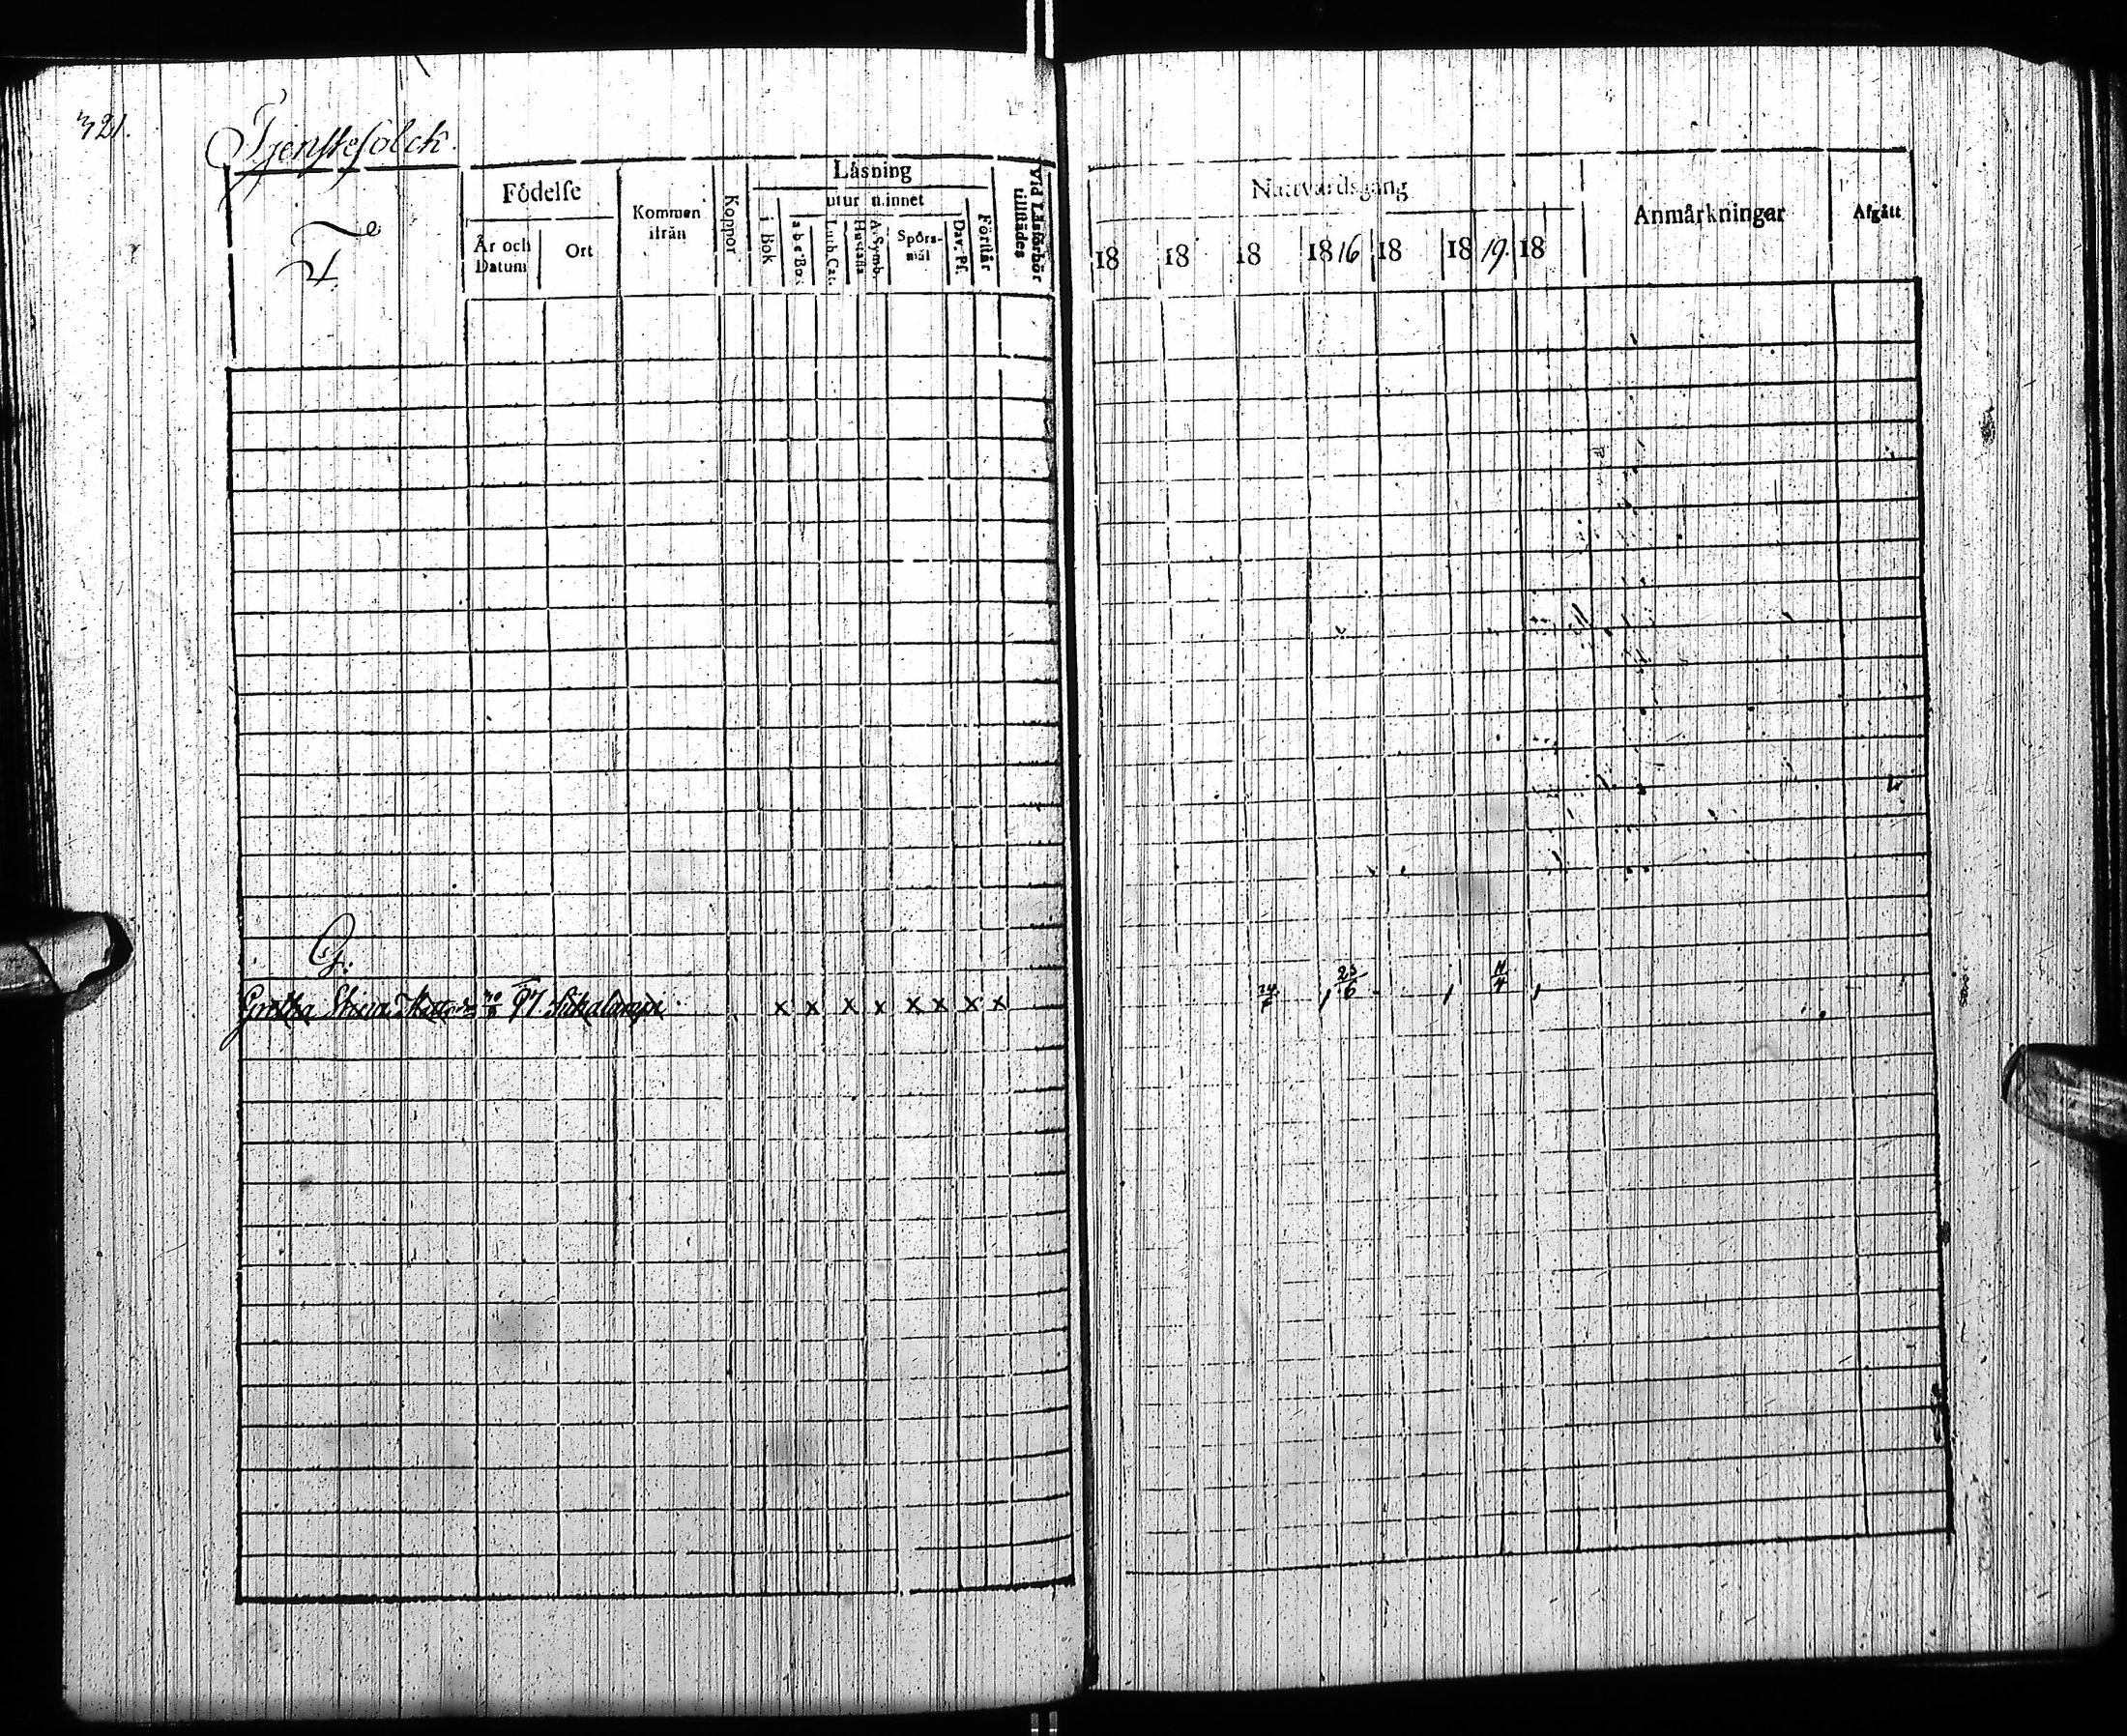 321.
Tjenstefolck.
F.
Födelse
År och Datum
Ort
Kommen ifrån
Koppor
Läsning
utur minnet
i Bok
a b c Bok
Luth. Cat.
Hustafla
A. Symb.
Spörsmål
Dav. Ps.
Förstår
Vid Läsförhör tillstädes
Nattvardsgång
18 18 18 1816 18 1819. 18
Anmärkningar
Afgått
G.
Gretha 97 x x x x x x x x 23/6 11/4